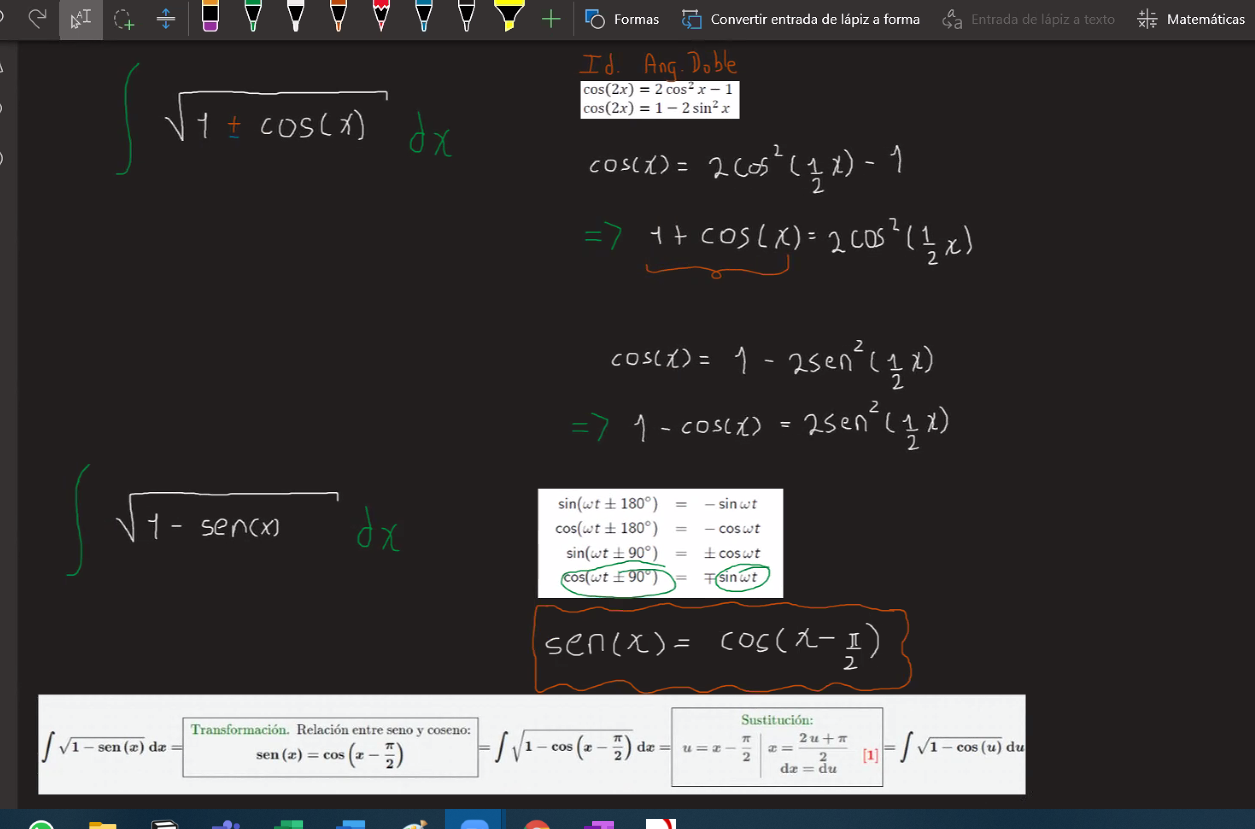 Formas Convertir entrada de lápiz a forma Entrada de lápiz a texto Matemáticas
Id. Ang. Doble
cos(2x) = 2 cos² x − 1
cos(2x) = 1 − 2 sin² x
∫ √(1 ± cos(x)) dx
cos(x) = 2cos²(1/2 x) - 1
=> 1 + cos(x) = 2cos²(1/2 x)
cos(x) = 1 - 2sen²(1/2 x)
=> 1 - cos(x) = 2sen²(1/2 x)
∫ √(1 - sen(x)) dx
sin(ωt ± 180°) = − sin ωt
cos(ωt ± 180°) = − cos ωt
sin(ωt ± 90°) = ± cos ωt
cos(ωt ± 90°) = ∓ sin ωt
sen(x) = cos(x - π/2)
∫ √(1 − sen (x)) dx = Transformación. Relación entre seno y coseno: sen (x) = cos (x − π/2) = ∫ √(1 − cos (x − π/2)) dx = Sustitución: u = x − π/2 | x = (2u + π)/2 dx = du [1] = ∫ √(1 − cos (u)) du